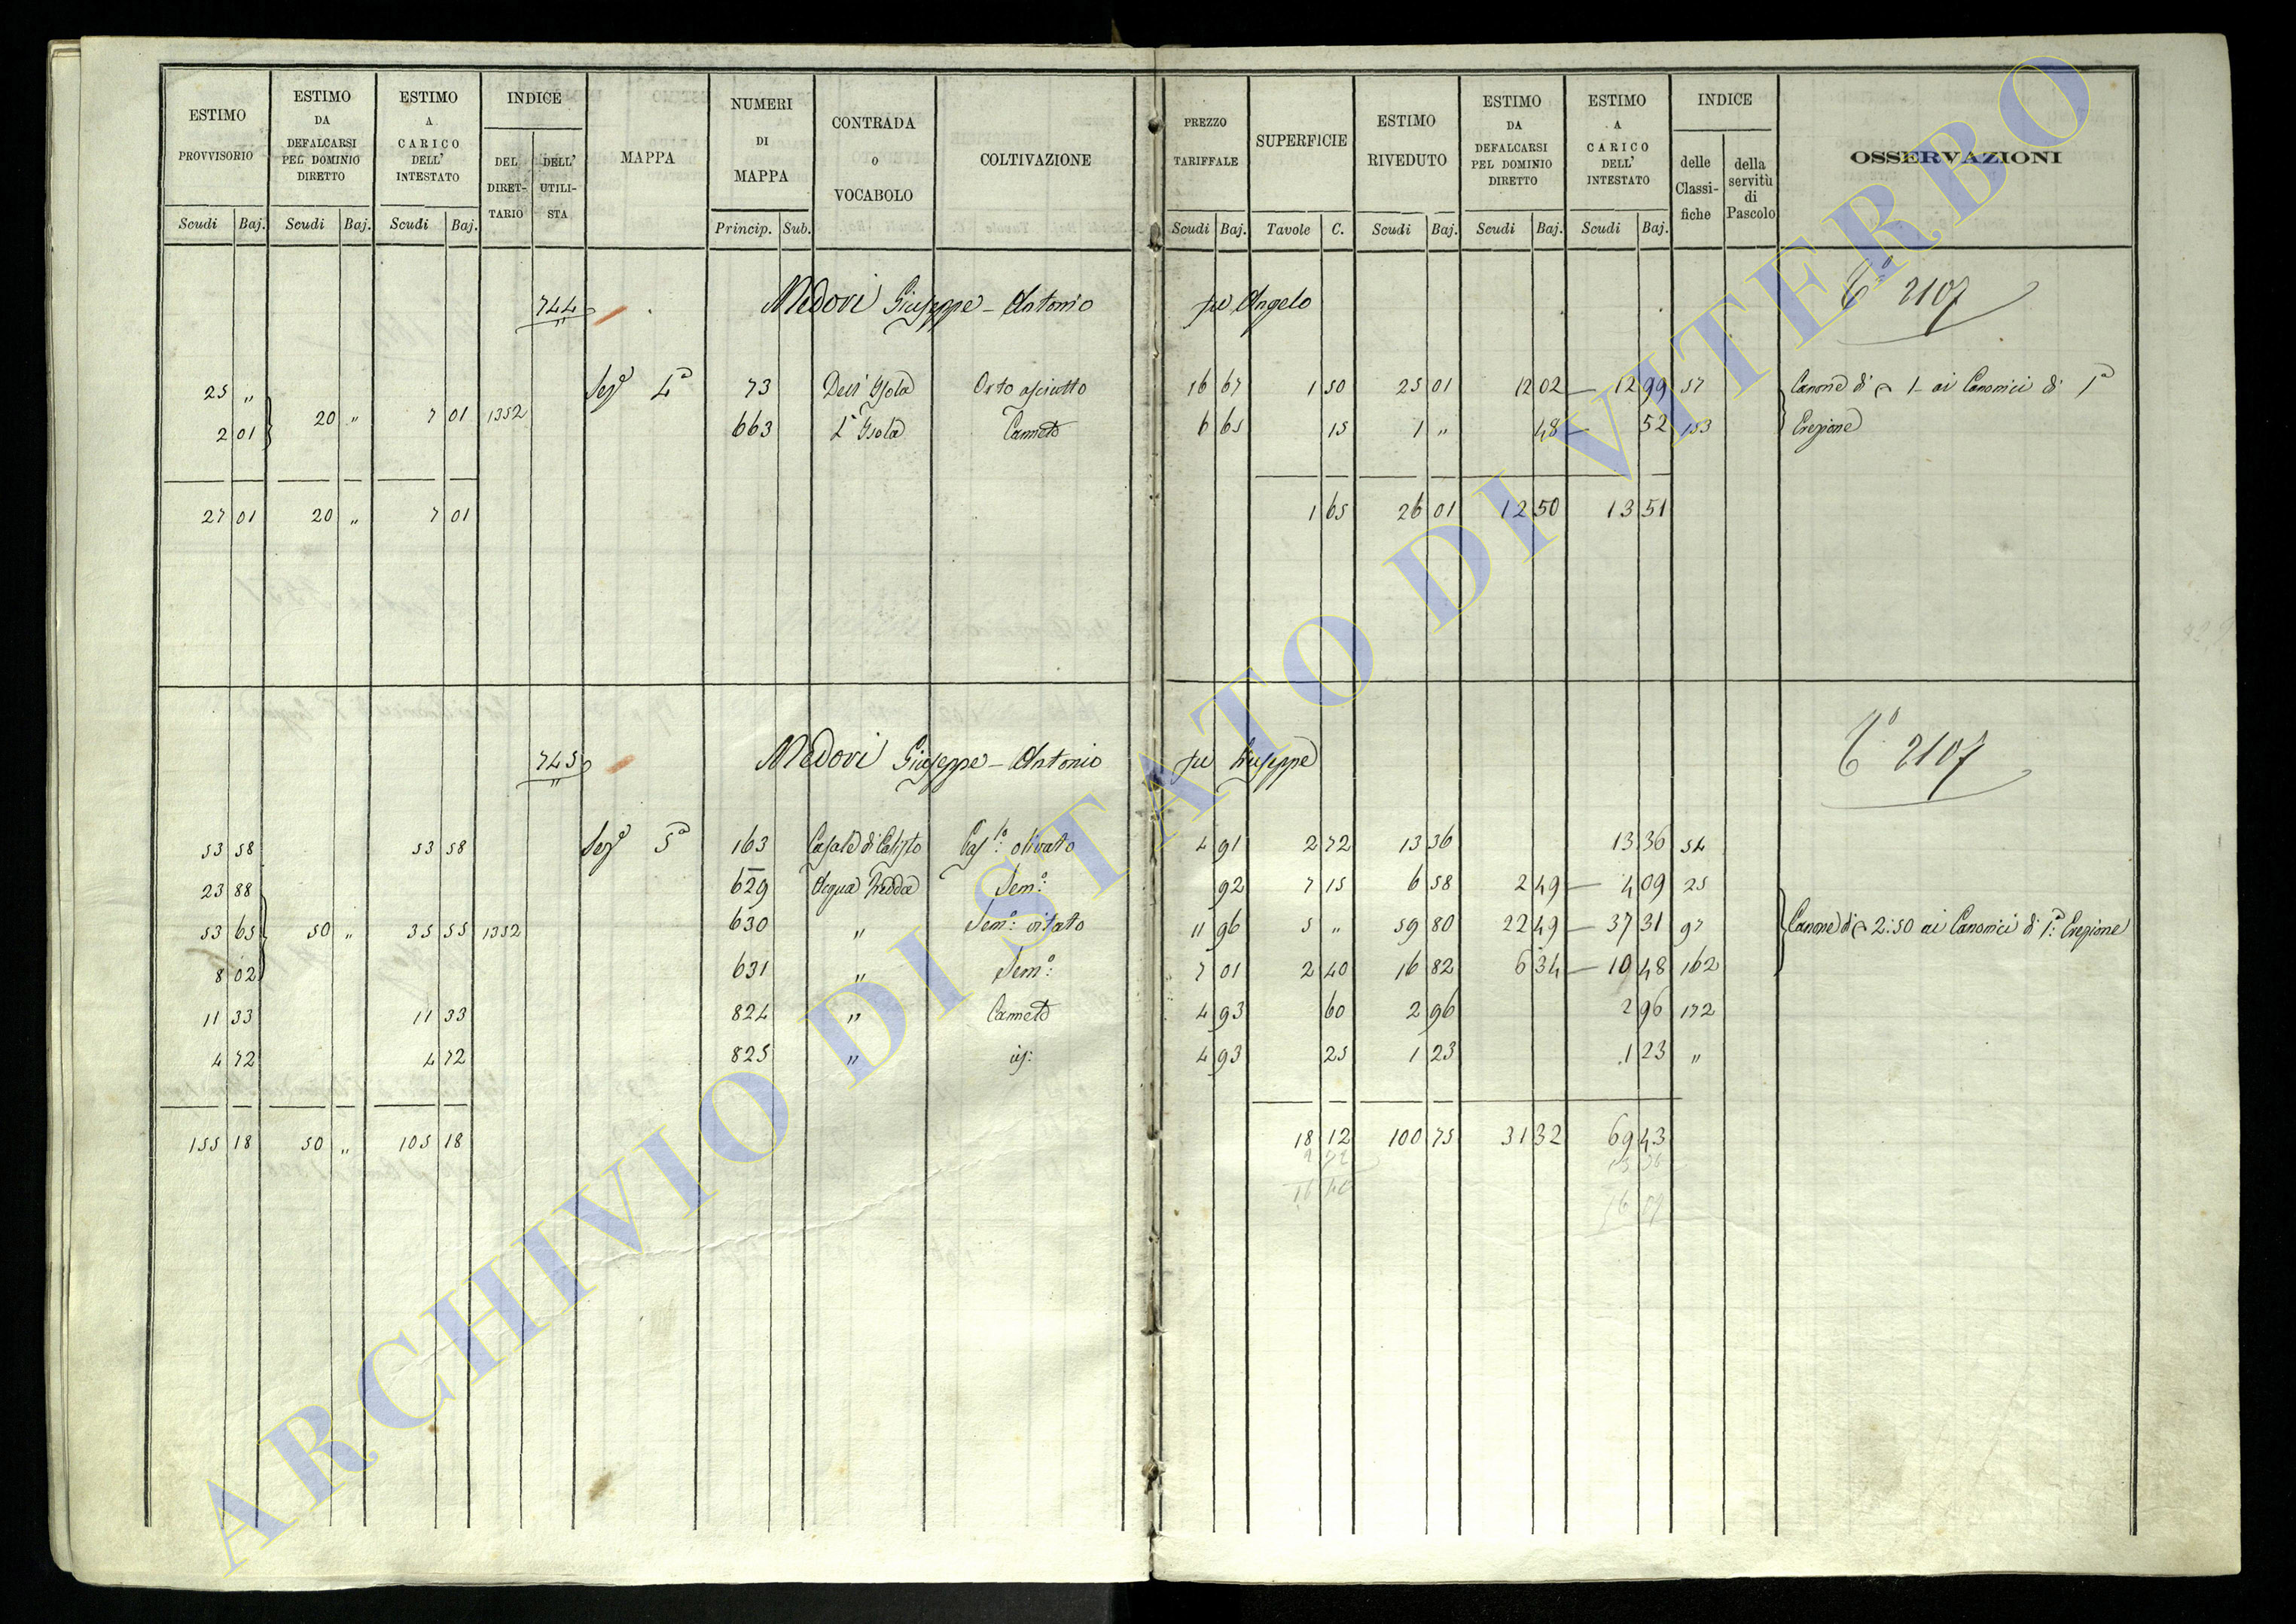 ESTIMO PROVVISORIO Scudi Baj.
ESTIMO DA DEFALCARSI PEL DOMINIO DIRETTO Scudi Baj.
ESTIMO A CARICO DELL' INTESTATO Scudi Baj.
INDICE DEL DIRET-TARIO DELL' UTILI-STA
MAPPA
NUMERI DI MAPPA Princip. Sub.
CONTRADA o VOCABOLO
COLTIVAZIONE
PREZZO TARIFFALE Scudi Baj.
SUPERFICIE Tavole C.
ESTIMO RIVEDUTO Scudi Baj.
ESTIMO DA DEFALCARSI PEL DOMINIO DIRETTO Scudi Baj.
ESTIMO A CARICO DELL' INTESTATO Scudi Baj.
INDICE delle Classi-fiche della servitù di Pascolo
OSSERVAZIONI
744 Nedovi Giuseppe - Antonio fu Angelo 2107
25 " Sez.e 4a 73 Dell' Isola Orto asciutto 16 67 1 50 25 01 12 02 — 12 99 57 Canone di 1 – ai Canonici di 1a
20 " 7 01 1352
2 01 663 L' Isola Canneto 6 65 15 1 " 48 — 52 153 Erezione
27 01 20 " 7 01 1 65 26 01 12 50 13 51
745 Nedovi Giuseppe - Antonio fu Giuseppe 2107
53 58 53 58 Sez.e 5a 163 Casale di Calisto Pas.lo olivato 4 91 2 72 13 36 13 36 54
23 88 629 Acqua fredda Sem.o 92 7 15 6 58 2 49 — 4 09 25
53 65 50 " 35 55 1352 630 " Sem.o vitato 11 96 5 " 59 80 22 49 — 37 31 97 Canone di 2:50 ai Canonici di 1a: Erezione
8 02 631 " Sem.o 7 01 2 40 16 82 6 34 — 10 48 162
11 33 11 33 824 " Canneto 4 93 60 2 96 2 96 172
4 72 4 72 825 " id: 4 93 25 1 23 1 23 "
155 18 50 " 105 18 18 12 100 75 31 32 69 43
ARCHIVIO DI STATO DI VITERBO